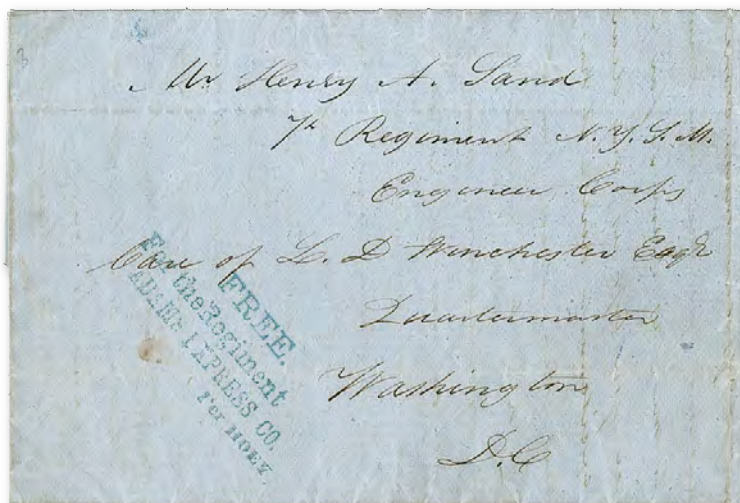 3
Mr Henry A. Sand
7th Regiment N.Y.S.M.
Engineer Corps
Care of L. D Winchester Esqr
Quartermaster
Washington
D.C
FREE.
For the Regiment
ADAMS EXPRESS CO.
Per HOEY.